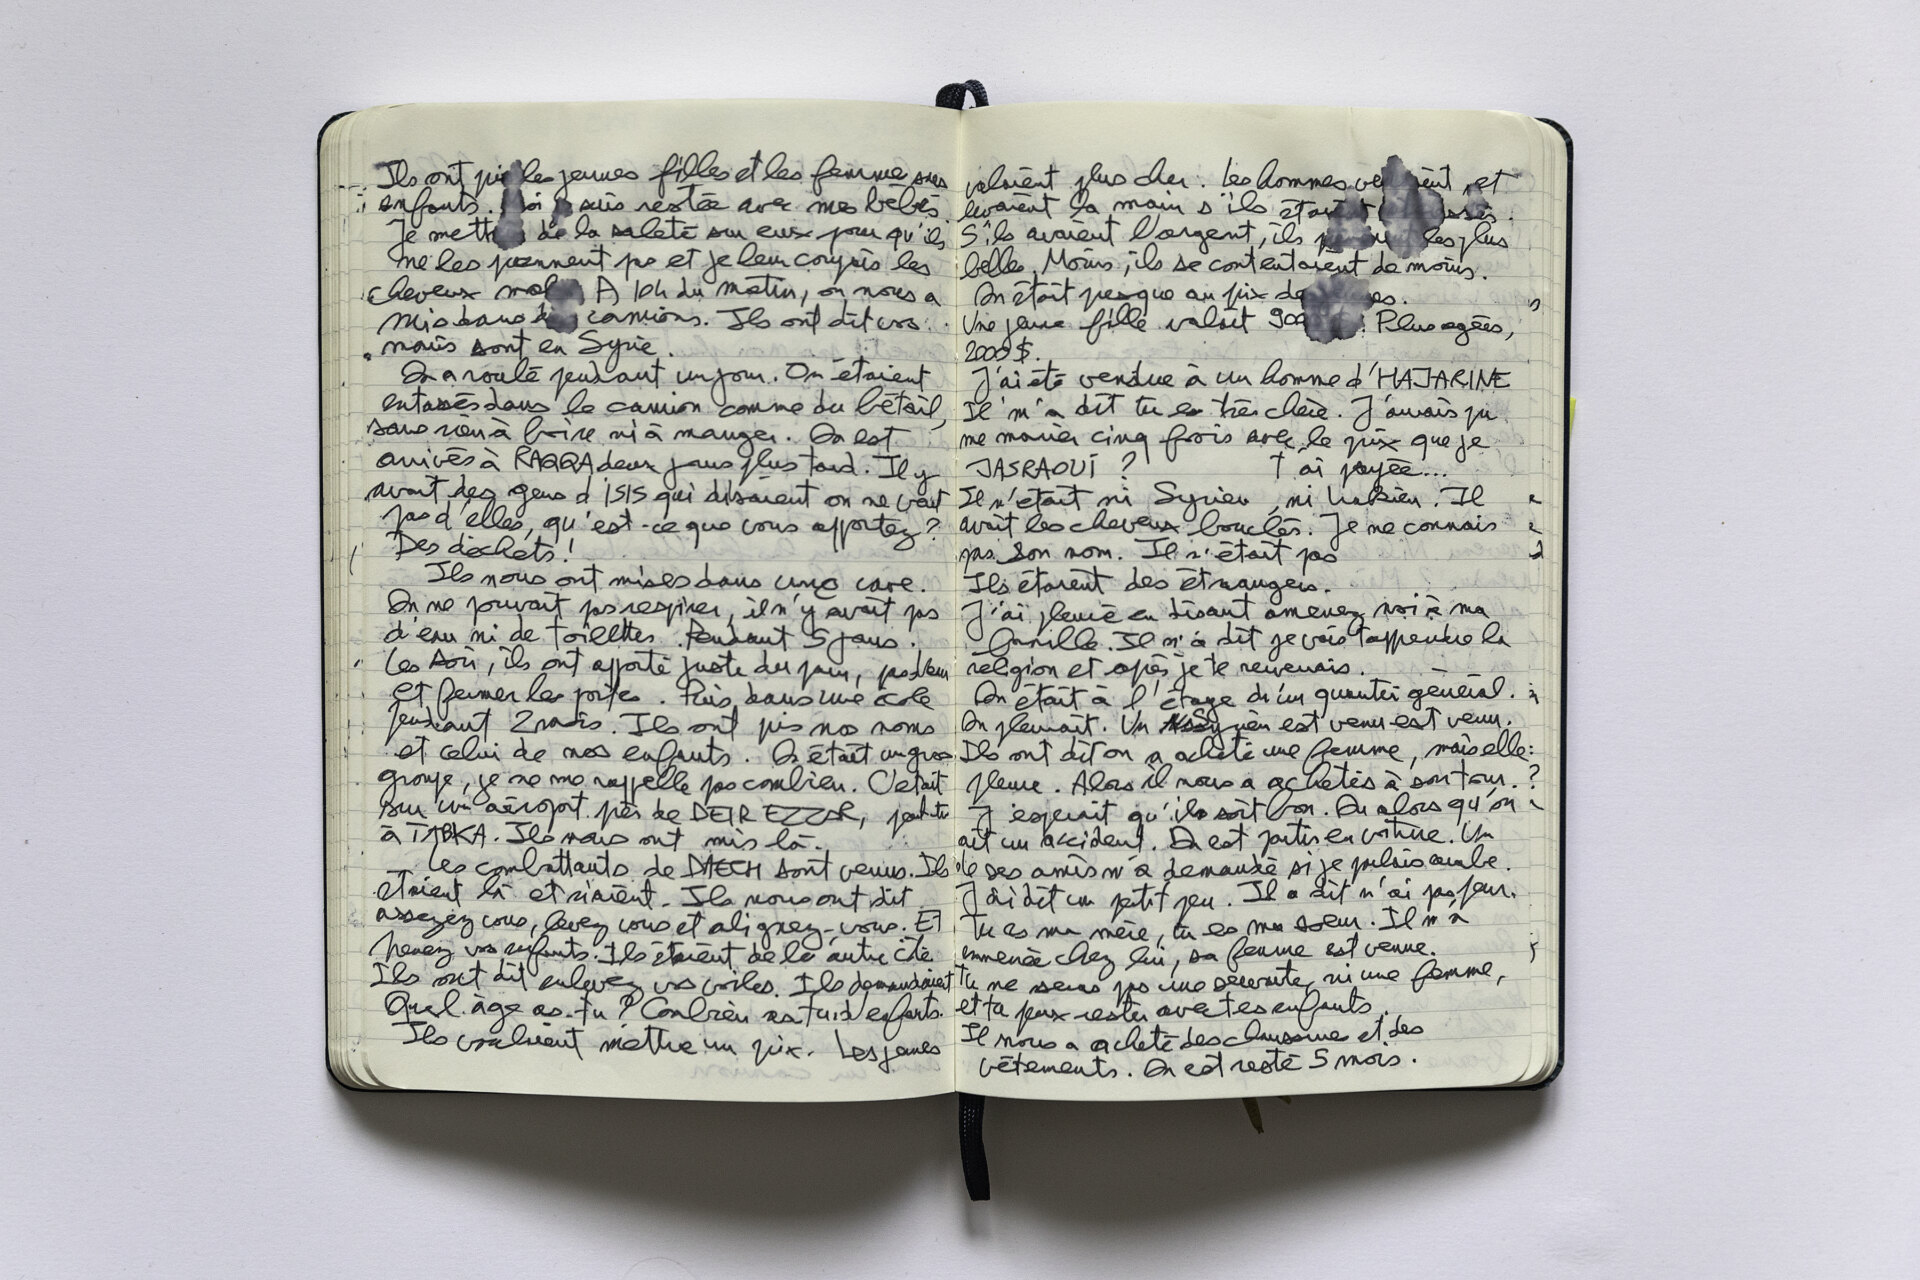 Ils ont pris les jeunes filles et les femme sans
enfants. Moi je suis restée avec mes bébés
Je mettais de la saleté sur eux pour qu'ils
ne les prennent pas et je leur coupais les
cheveux mal. A 10h du matin, on nous a
mis dans camions. Ils ont dit vos
maris sont en Syrie.
On a roulé pendant un jour. On étaient
entassés dans le camion comme du bétail,
sans rien à boire ni à manger. On est
arrivés à RAQQA deux jours plus tard. Il y
avait des gens d'ISIS qui disaient on ne veut
pas d'elles, qu'est-ce que vous apportez?
Des déchets!
Ils nous ont mises dans une cave.
On ne pouvait pas respirer, il n'y avait pas
d'eau ni de toilettes. Pendant 5 jours.
Les soir, ils ont apporté juste du pain, pas d'eau
et fermer les portes. Puis dans une école
pendant 2 mois. Ils ont pris nos noms
et celui de nos enfants. On était un gros
groupe, je ne me rappelle pas combien. C'était
sur un aéroport près de DEIR EZZOR, peut-être
à TABKA. Ils nous ont mis là.
Les combattants de DAECH sont venus. Ils
étaient là et riaient. Ils nous ont dit
asseyez vous, levez vous et alignez-vous. Et
prenez vos enfants. Ils étaient de la autre côté
Ils ont dit enlevez vos voiles. Ils demandaient
Quel âge as-tu? Combien as tu d'enfants.
Ils voulaient mettre un prix. Les jeunes
valaient plus cher. Les hommes et
levaient la main s'ils étaient
S'ils avaient l'argent, ils les plus
belles. Moins, ils se contentaient de moins.
On était presque au prix
Une jeune fille valait 900 Plus agées,
2000$.
J'ai été vendue à un homme d'HAJARINE
Il m'a dit tu es très chère. J'aurais pu
me marier cinq fois avec le prix que je
JASRAOUI ? t'ai payée...
Il n'était ni Syrien, ni Irakien. Il
avait les cheveux bouclés. Je ne connais
pas son nom. Il n'était pas
Ils étaient des étrangers.
J'ai pleuré en disant amenez moi à ma
famille. Il m'a dit je vais t'apprendre la
religion et après je te revenais.
On était à l'étage d'un quartier général.
On pleurait. Un Syrien est venu est venu.
Ils ont dit on a acheté une femme, mais elle
pleure. Alors il nous a achetés à son tour.
J'esperait qu'il soit bon. Ou alors qu'on
ait un accident. On est partis en voiture. Un
de ses amis m'a demandé si je parlais arabe.
J'ai dit un petit peu. Il a dit n'ai pas peur.
Tu es ma mère, tu es ma soeur. Il m'a
emmenée chez lui, sa femme est venue.
Tu ne seras pas une servante, ni une femme,
et tu peux rester avec tes enfants.
Il nous a acheté des chaussures et des
vêtements. On est resté 5 mois.